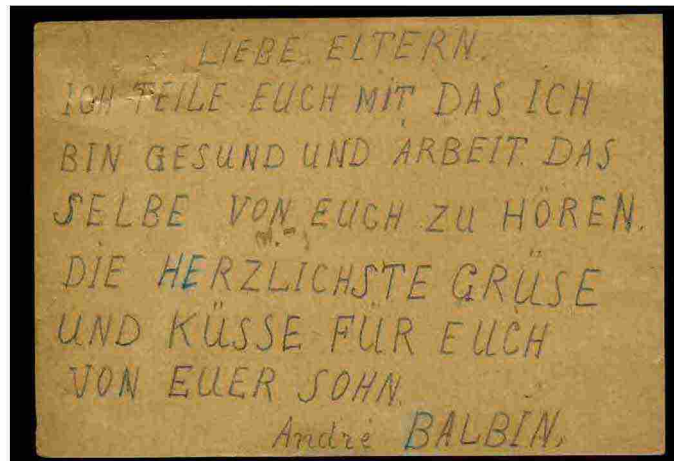 LIEBE ELTERN.
ICH TEILE EUCH MIT DAS ICH
BIN GESUND UND ARBEIT. DAS
SELBE VON EUCH ZU HÖREN.
DIE HERZLICHSTE GRÜSE
UND KÜSSE FÜR EUCH
VON EUER SOHN.
André BALBIN.